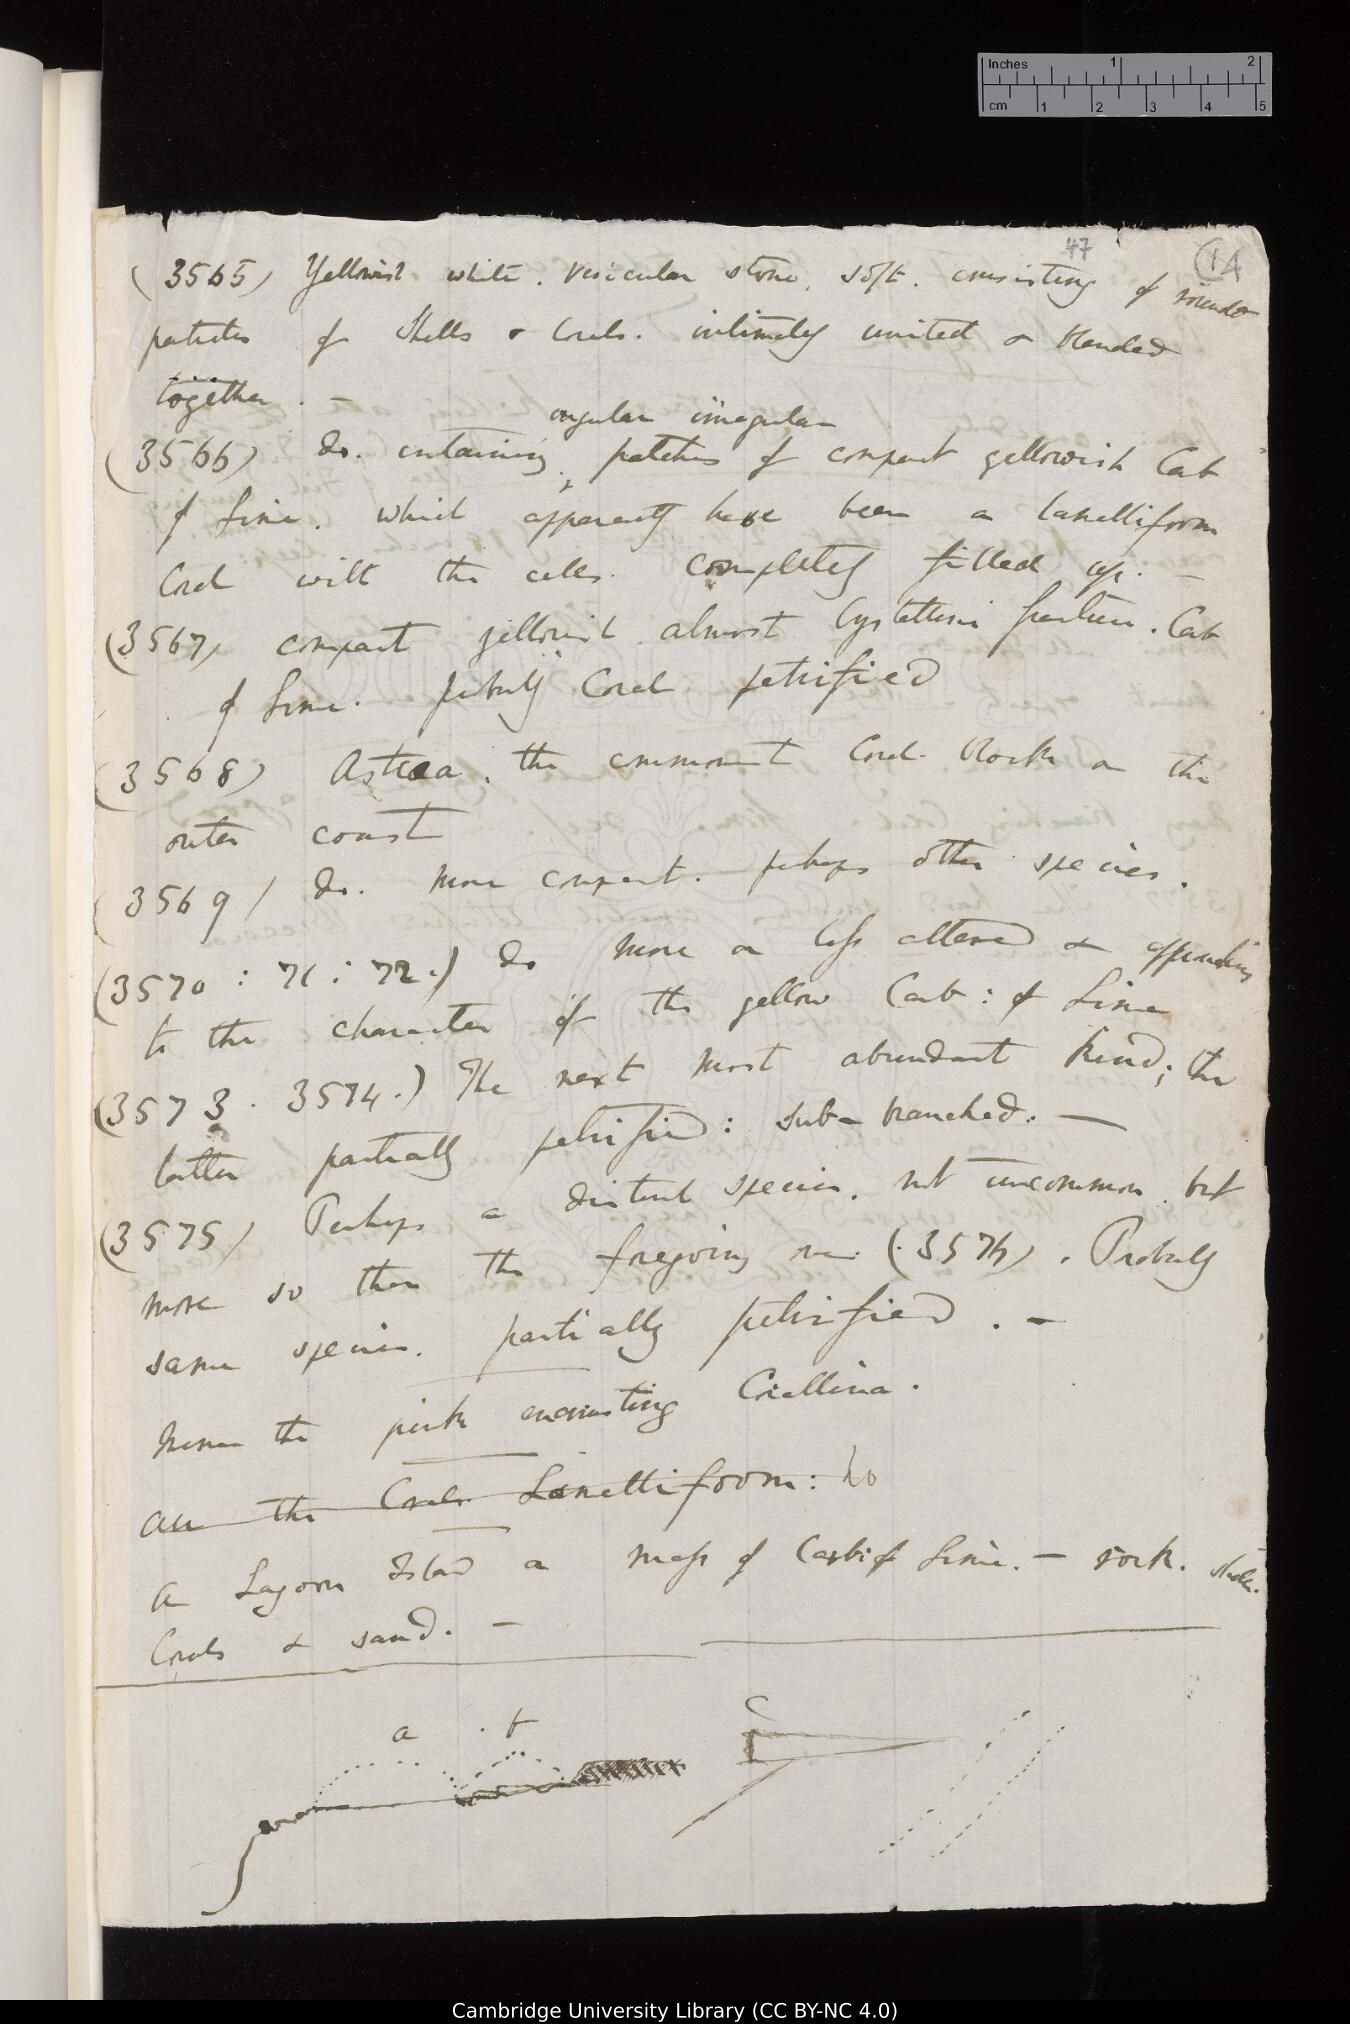 Inches 1 2
cm 1 2 3 4 5
47
14
(3565) Yellowish white. vesicular stone, soft. consisting of rounded
particles of Shells & Corals. intimately united & blended
together. —
angular irregular
(3566) do. containing patches of compact yellowish Carb
of Lime. which apparently have been a lamelliform
Coral with the cells. completely filled up. —
(3567) compact yellowish almost Crystalline fracture. Carb
of Lime. probably Coral petrified
(3568) Astrea. the commonest Coral. Rock on the
outer coast
(3569) do. more compact. perhaps other species.
(3570 : 71 : 72.) do more or less altered & approaching
to the character of the yellow Carb: of Lime
(3573. 3574.) The next most abundant kind; the
latter partially petrified: sub-branched. —
(3575) Perhaps a distinct species. not uncommon. but
more so than the foregoing one. (3576). Probably
same species. partially petrified. —
the pink encrusting Corallina.
All the Corals Lamelliform: No
A Lagoon Island a mass of Carb: of Lime. — rock. shells.
Corals & sand. —
a b
C
Cambridge University Library (CC BY-NC 4.0)